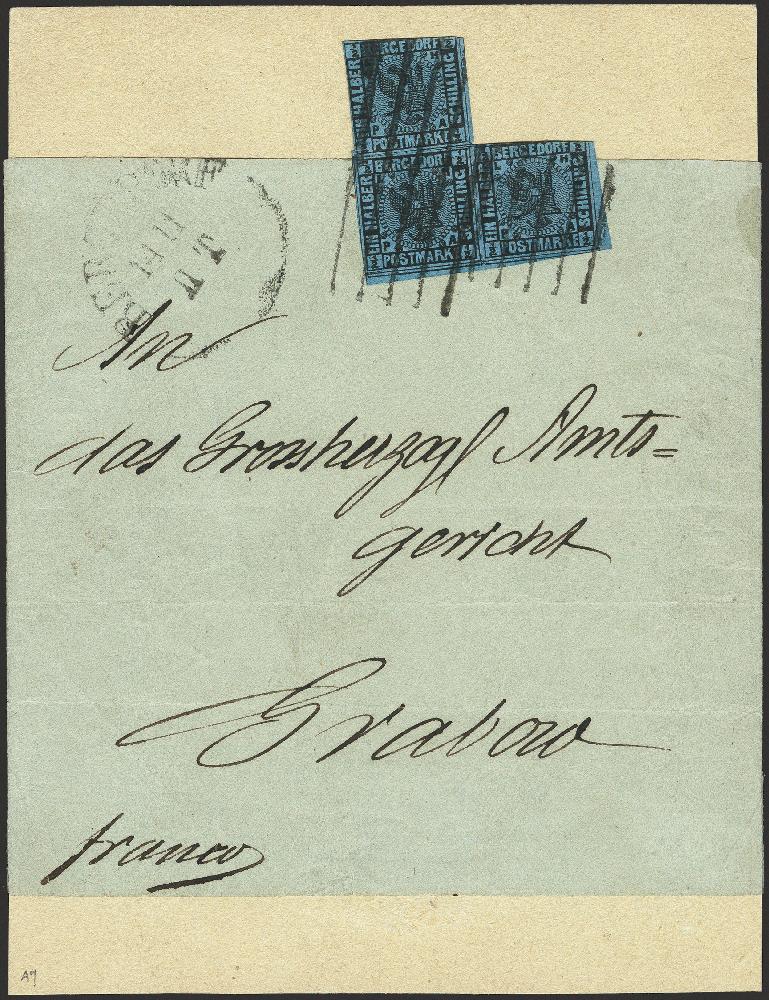 BERGEDORF
EIN HALBER
SCHILLING
POSTMARKE
BERGEDORF
EIN HALBER
SCHILLING
POSTMARKE
BERGEDORF
EIN HALBER
SCHILLING
POSTMARKE
An
das Grossherzogl Amts=
gericht
Grabow
franco
A7